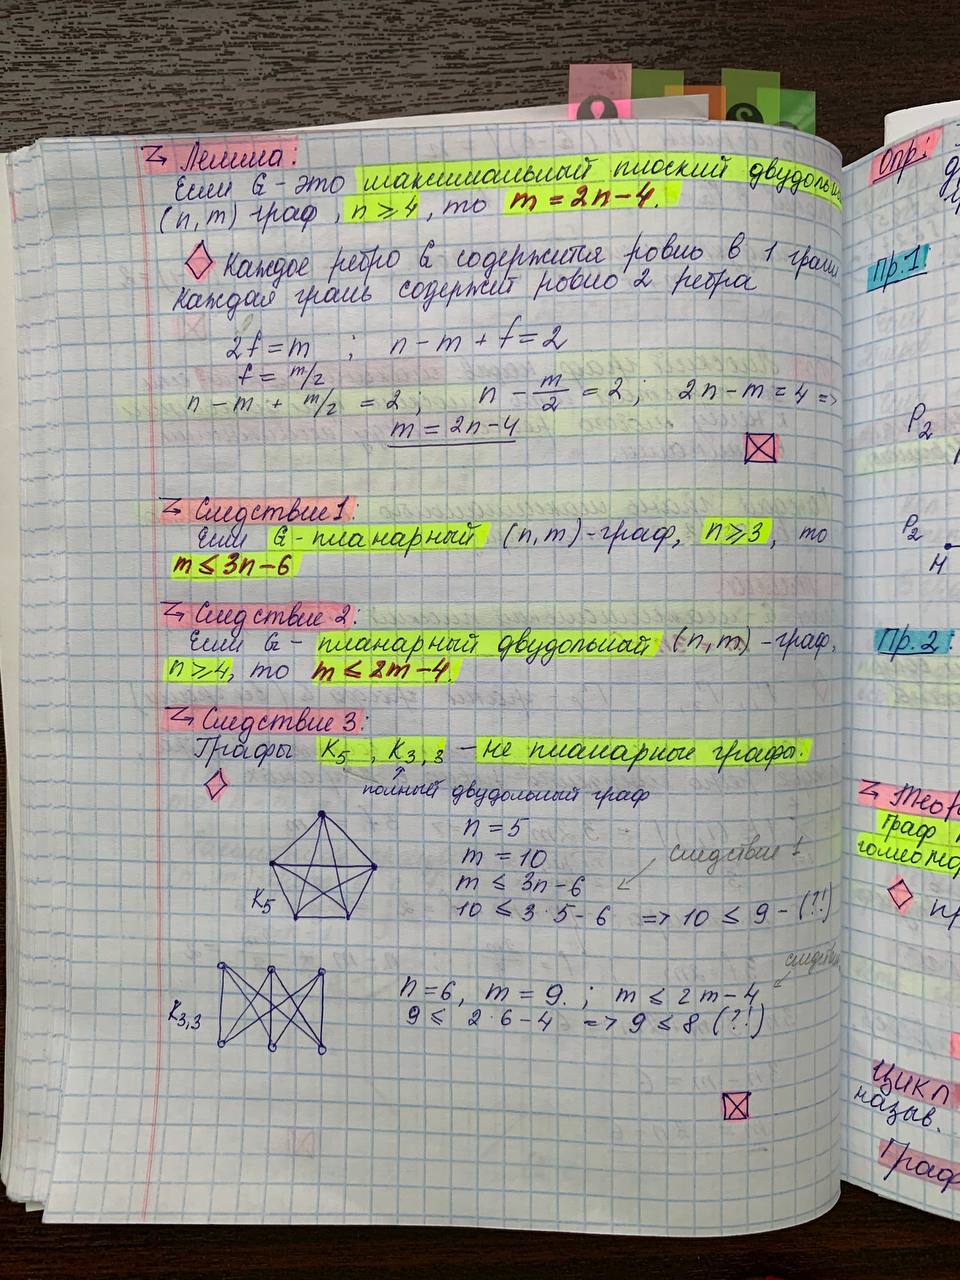 Лемма:
Если G - это максимальный плоский двудольн
(n, m) граф, n ≥ 4, то m = 2n - 4.
Каждое ребро G содержится ровно в 1 грани
Каждая грань содержит ровно 2 ребра
2f = m ; n - m + f = 2
f = m/2
n - m + m/2 = 2, n - m/2 = 2; 2n - m = 4 =>
m = 2n - 4
Следствие 1:
Если G - планарный (n, m) - граф, n ≥ 3, то
m ≤ 3n - 6
Следствие 2:
Если G - планарный двудольный (n, m) - граф,
n ≥ 4, то m ≤ 2m - 4.
Следствие 3:
Графы K5, K3,3 - не планарные графы.
полный двудольный граф
n = 5
m = 10
следствие 1
m ≤ 3n - 6
K5
10 ≤ 3·5 - 6 => 10 ≤ 9 - (?!)
следств
K3,3
n = 6, m = 9. ; m ≤ 2m - 4
9 ≤ 2·6 - 4 => 9 ≤ 8 (?!)
Опр:
Пр.1
P2
P2
Пр. 2:
Теор
Граф
гомеомор
Цикл
назыв.
Граф